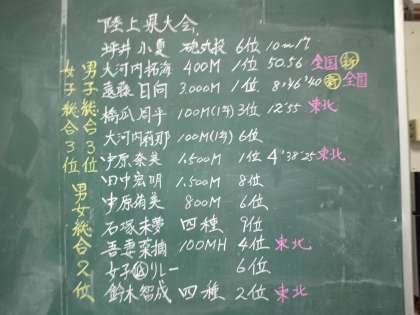 陸上県大会
坪井 小夏 砲丸投 6位 10m
大河内拓海 400M 1位 50.56 全国 新
遠藤 日向 3.000M 1位 新 全国
橋爪 周平 100M(1年) 3位 12"55 東北
大河内莉那 100M(1年) 6位
中原奈美 1.500M 1位 4'38"25 東北
田中宏明 1.500M 8位
中原侑美 800M 6位
石塚未夢 四種 9位
吾妻菜摘 100MH 4位 東北
女子 リレー 6位
鈴木智成 四種 2位 東北
男子総合3位
女子総合3位
男女総合2位